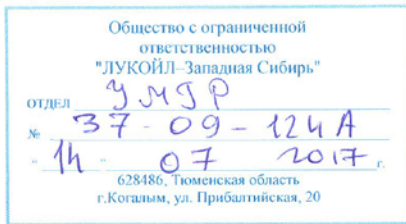 Общество с ограниченной
ответственностью
"ЛУКОЙЛ–Западная Сибирь"
ОТДЕЛ УМГР
№ 37-09-124А
" 14 " 07 2017 г.
628486, Тюменская область
г.Когалым, ул. Прибалтийская, 20